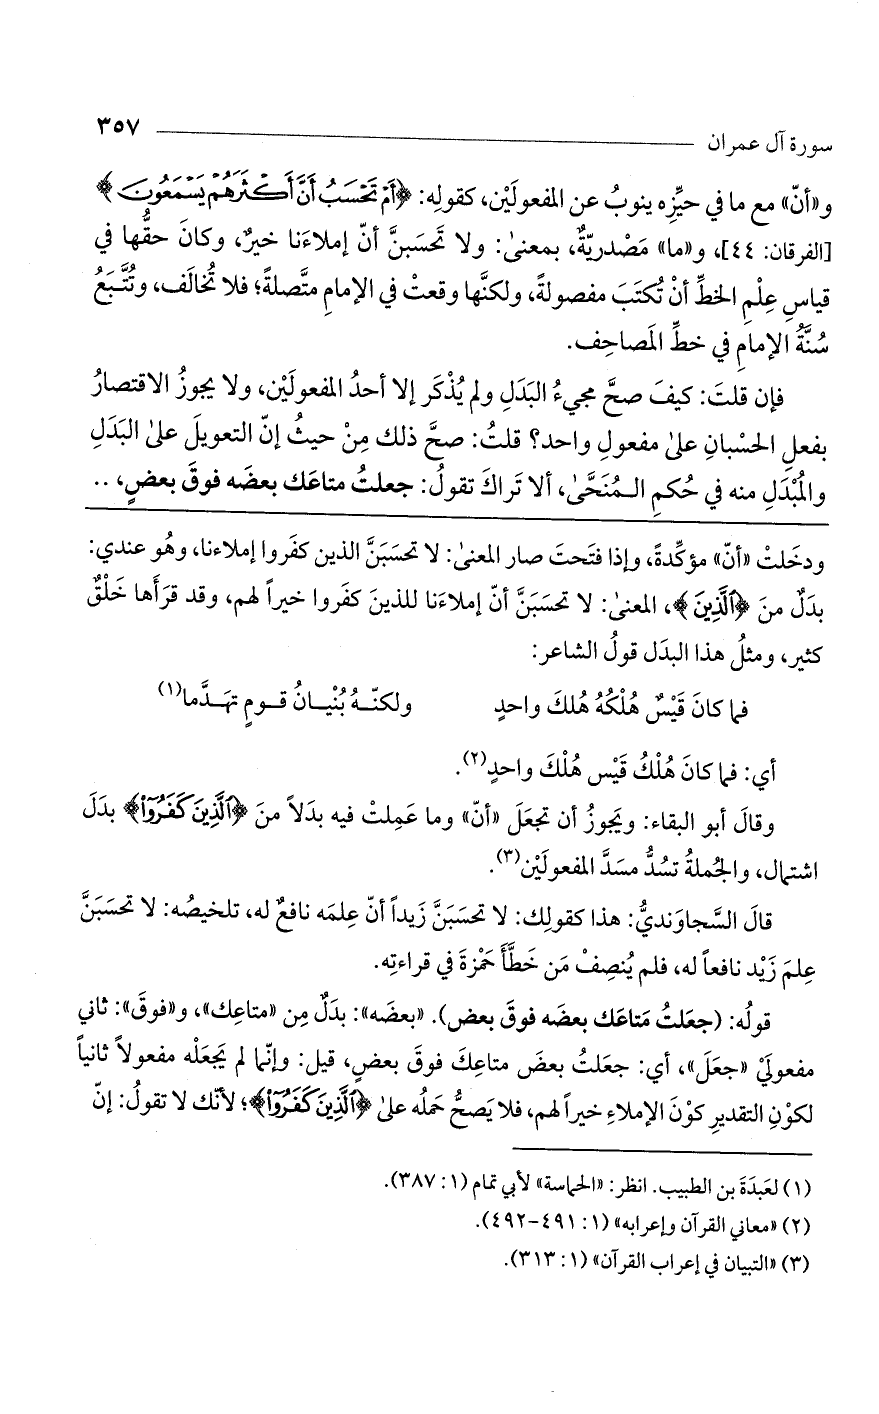 سورة آل عمران ٣٥٧
و«أنّ» مع ما في حيِّزِه ينوبُ عن المفعولَيْن، كقولِه: ﴿أَمْ تَحْسَبُ أَنَّ أَكْثَرَهُمْ يَسْمَعُونَ﴾
[الفرقان: ٤٤]، و«ما» مَصْدريّةٌ، بمعنىٰ: ولا تَحسَبنَّ أنّ إملاءَنا خيرٌ، وكانَ حقُّها في
قياسِ عِلْمِ الخطِّ أنْ تُكتَبَ مفصولةً، ولكنَّها وقعتْ في الإمامِ متَّصلةً؛ فلا تُخالَف، وتُتَّبَعُ
سُنَّةُ الإمامِ في خطِّ المَصاحِف.
فإن قلتَ: كيفَ صحَّ مجيءُ البَدَلِ ولم يُذْكَر إلا أحدُ المفعولَيْن، ولا يجوزُ الاقتصارُ
بفعلِ الحسْبانِ علىٰ مفعولٍ واحد؟ قلتُ: صحَّ ذلك مِنْ حيثُ إنّ التعويلَ علىٰ البَدَلِ
والمُبْدَلِ منه في حُكمِ المُنَحَّىٰ، ألا تَراكَ تقولُ: جعلتُ متاعَك بعضَه فوقَ بعضٍ، ..
ودخَلتْ «أنّ» مؤكِّدةً، وإذا فتَحتَ صار المعنىٰ: لا تحسَبَنَّ الذين كفَروا إملاءنا، وهُو عندي:
بدَلٌ منَ ﴿ٱلَّذِينَ﴾، المعنىٰ: لا تحسَبَنَّ أنّ إملاءَنا للذينَ كفَروا خيراً لهم، وقد قرَأَها خَلْقٌ
كثير، ومثلُ هذا البدَل قولُ الشاعر:
فما كانَ قَيْسٌ هُلْكُهُ هُلكَ واحدٍ ولكنّهُ بُنْيانُ قومٍ تهدَّما(١)
أي: فما كانَ هُلْكُ قَيْس هُلْكَ واحدٍ(٢).
وقالَ أبو البقاء: ويَجوزُ أن تجعَلَ «أنّ» وما عَمِلتْ فيه بدَلاً منَ ﴿ٱلَّذِينَ كَفَرُوٓا۟﴾ بدَلَ
اشتمال، والجُملةُ تسُدُّ مسَدَّ المفعولَيْن(٣).
قالَ السَّجاوَنديُّ: هذا كقولِك: لا تحسَبَنَّ زَيداً أنّ عِلمَه نافعٌ له، تلخيصُه: لا تحسَبَنَّ
عِلمَ زَيْد نافعاً له، فلم يُنصِفْ مَن خَطَّأَ حَمْزةَ في قراءتِه.
قولُه: (جعَلتُ مَتاعَك بعضَه فوقَ بعض). «بعضَه»: بدَلٌ مِن «متاعِك»، و«فوقَ»: ثاني
مفعولَيْ «جعَلَ»، أي: جعَلتُ بعضَ متاعِكَ فوقَ بعضٍ، قيل: وإنّما لم يَجعَلْه مفعولاً ثانياً
لكوْنِ التقديرِ كوْنَ الإملاءِ خيراً لهم، فلا يَصحُّ حَملُه علىٰ ﴿ٱلَّذِينَ كَفَرُوٓا۟﴾؛ لأنّك لا تقولُ: إنّ
(١) لعَبَدَةَ بن الطبيب. انظر: «الحماسة» لأبي تمّام (١: ٣٨٧).
(٢) «معاني القرآن وإعرابه» (١: ٤٩١-٤٩٢).
(٣) «التبيان في إعراب القرآن» (١: ٣١٣).